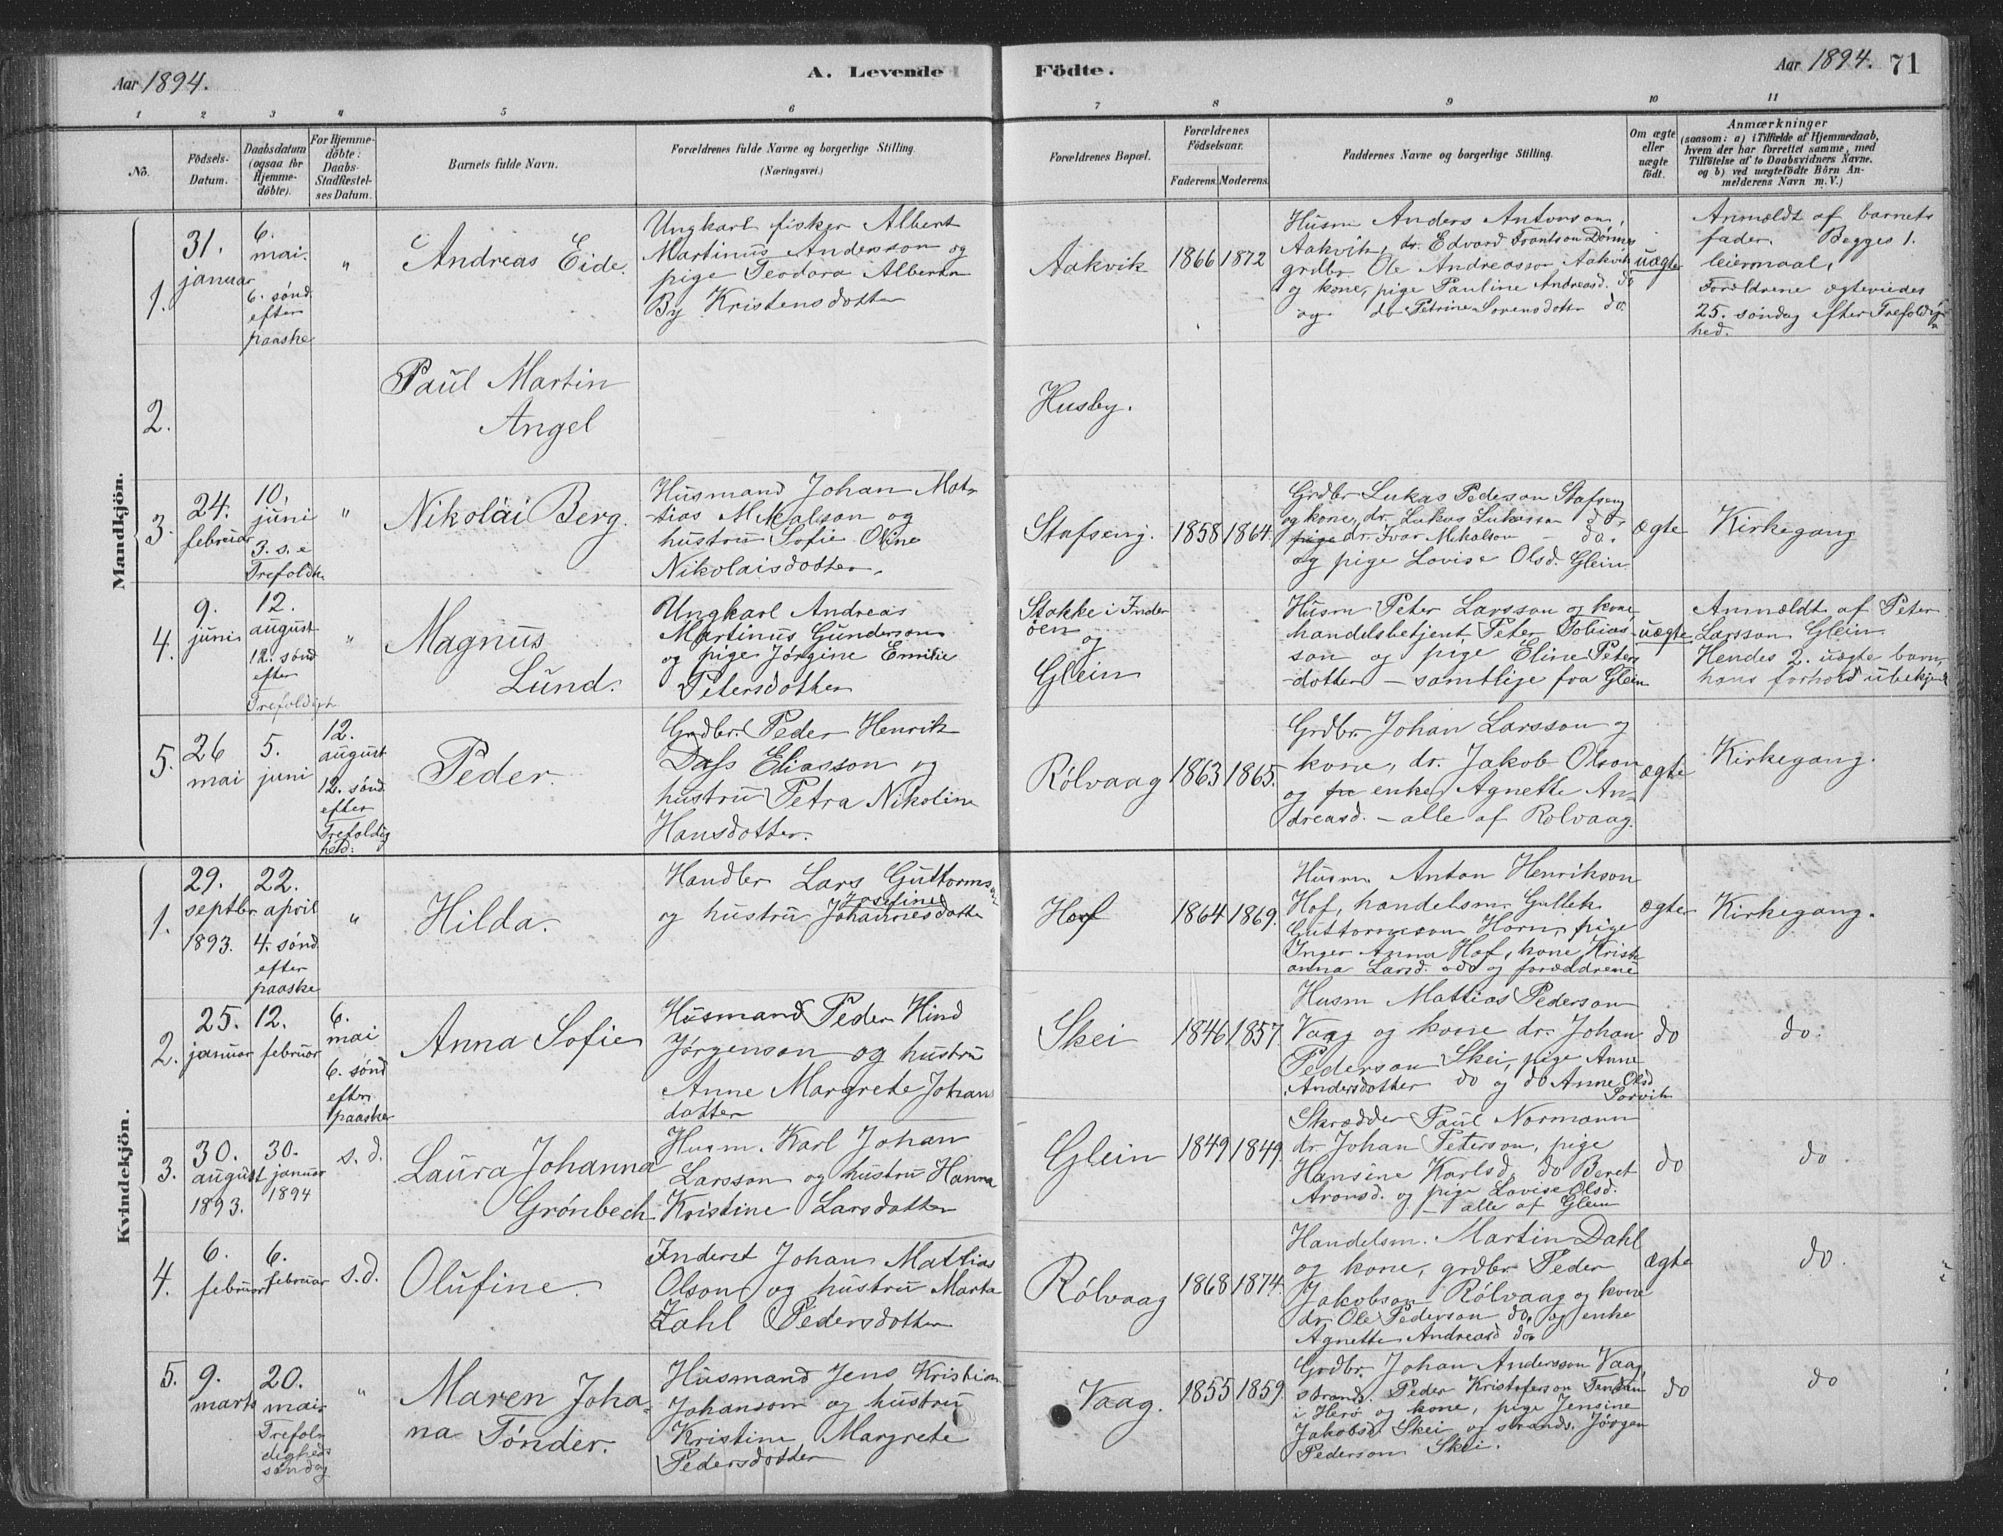 Aar 1894.
A. Levende
Födte.
Aar 1894.
71
1 2 3 4 5 6 7 8 9 10 11
No.
Födsels-Datum.
Daabsdatum (ogsaa för Hjemmedöbte).
For Hjemmedöbte: Daabs-Stadfæstelses Datum.
Barnets fulde Navn.
Forældrenes fulde Navne og borgerlige Stilling. (Næringsvei.)
Forældrenes Bopæl.
Forældrenes Födselsaar.
Faderens. Moderens.
Faddernes Navne og borgerlige Stilling.
Om ægte eller uægte födt.
Anmærkninger
(saasom: a) i Tilfælde af Hjemmedaab, hvem der har forrettet samme, med Tilföielse af to Daabsvidners Navne, og b) ved uægtefödte Börn Anmelderens Navn m. V.)
Mandkjön.
1.
31. januar
6. mai.
6. sønd. efter paaske
"
Andreas Eide.
Ungkarl fisker Albert
Martinus Andersson og
pige Teodora Alberta
By Kristensdotter
Aakvik
1866 1872
Husm Anders Antonson,
Aakvik, dr. Edvard Frantson Dønnes
grdbr. Ole Andreasson Aakvik
og kone, pige Pauline Andreasd. do
og do Petrine Sorensdotter do.
uægte
Anmældt af barnets
fader. Begges 1.
leiermaal,
Forældrene ægteviedes
25. søndag efter Trefoldig-
hed.
2.
Paul Martin
Angel
Husby.
3.
24. februar
10. juni
3. s. e Trefoldh.
"
Nikolai Berg.
Husmand Johan Mat-
tias Mikalson og
hustru Sofie Oline
Nikolaisdotter.
Stafseng.
1858 1864.
Grdbr Lukas Pederson Stafseng
og kone, dr. Lukas Lukasson do,
pige dr. Ivar Mikalson - do.
og pige Lovise Olsd. Glein
ægte
Kirkegang
4.
9. juni
12. august
12. sønd efter Trefoldigh
"
Magnus
Lund.
Ungkarl Andreas
Martinus Gunderson
og pige Jørgine Emilie
Petersdotter
Stokke i Inder
øen
og
Glein
Husm Peter Larsson og kone,
handelsbetjent Peter Tobias-
son og pige Eline Peters
-dotter - samtlige fra Glein
uægte
Anmældt af Peter
Larsson Glein
Hendes 2. uægte barn,
hans forhold ubekjend
5.
26 mai
5. juni
12. august
12. sønd. efter Trefoldig hed:
Peder.
Grdbr. Peder Henrik
Dass Eliasson og
hustru Petra Nikoline
Hansdotter.
Rølvaag
1863 1865.
Grdbr Johan Larsson og
kone, dr. Jakob Olson
og enke Agnette An-
dreasd. - alle af Rolvaag.
ægte
Kirkegang.
Kvindekjön.
1.
29. septbr 1893.
22. april
4. sønd. efter paaske
"
Hilda.
Handler Lars Guttorms
Josefine
og hustru Johannesdotter
Hof
1864 1869.
Husm Anton Henrikson
Hof, handelsm. Gullek
Guttormson Horn, pige
Inger Anna Hof, kone Kristi-
anna Larsd. do og forældrene
ægte
Kirkegang.
2.
25. januar
12. februar
6. mai
6. sønd efter paaske
Anna Sofie
Husmand Peder Hind
Jørgenson og hustru
Anne Margrete Johans
dotter
Skei
1846 1857.
Husm Mattias Pederson
Vaag og kone dr. Johan
Pederson Skei, pige Anne
Andersdotter do og do Anne Olsd.
Sorvik
do
do.
3.
30. august 1893.
30. januar 1894
s. d.
Laura Johanna
Grønbech
Husm. Karl Johan
Larsson og hustru Hanna
Kristine Larsdotter
Glein
1849 1849.
Skrædder Paul Normann
dr Johan Peterson, pige
Hansine Karlsd, do Beret
Aronsd. og pige Lovise Olsd.
- alle af Glein
do
do.
4.
6. februar
6. februar
s. d.
Olufine.
Inderst Johan Mattias
Olson og hustru Marta
Zahl Pedersdotter
Rølvaag
1868 1874.
Handelsm. Martin Dahl
og kone, grdbr. Peder
Jakobson Rølvaag og kone
dr. Ole Pederson do, og enke
Agnette Andreasd do
ægte
do.
5.
9. marts
20. mai
Trefoldigheds søndag
"
Maren Joha-
na Tønder.
Husmand Jens Kristian
Johanson og hustru
Kristine Margrete
Pedersdotter
Vaag.
1855 1859.
Grdbr. Johan Andersson Vaag,
strands. Peder Kristoferson
i Herø og kone, pige Jensine
Jakobsd. Skei og strands. Jørgen
Pederson Skei.
do
do